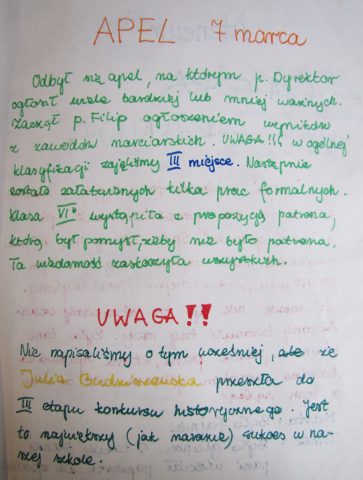 APEL 7 marca
Odbył się apel, na którym p. Dyrektor
ogłosił wiele bardziej lub mniej ważnych.
Zaczął p. Filip ogłoszeniem wyników
z zawodów narciarskich. UWAGA!!! w ogólnej
klasyfikacji zajęliśmy III miejsce. Następnie
zostało załatwionych kilka prac formalnych.
Klasa VI wystąpiła z propozycją patrona,
którą był pomysł, żeby nie było patrona.
Ta wiadomość zaskoczyła wszystkich.
UWAGA!!
Nie napisaliśmy o tym wcześniej, ale że
Julia przeszła do
III etapu konkursu historycznego. Jest
to największy (jak narazie) sukces w na-
szej szkole.